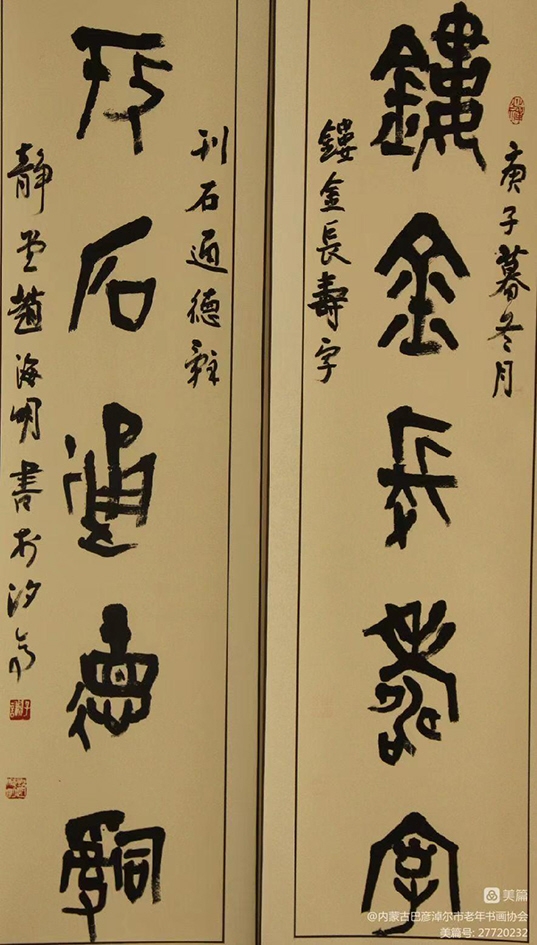 庚子暮冬月
鏤金長壽字
鏤金長壽字
刊石通德辭
刊石通德辭
靜堂趙海明書於汐
美篇
@内蒙古巴彦淖尔市老年书画协会
美篇号: 27720232